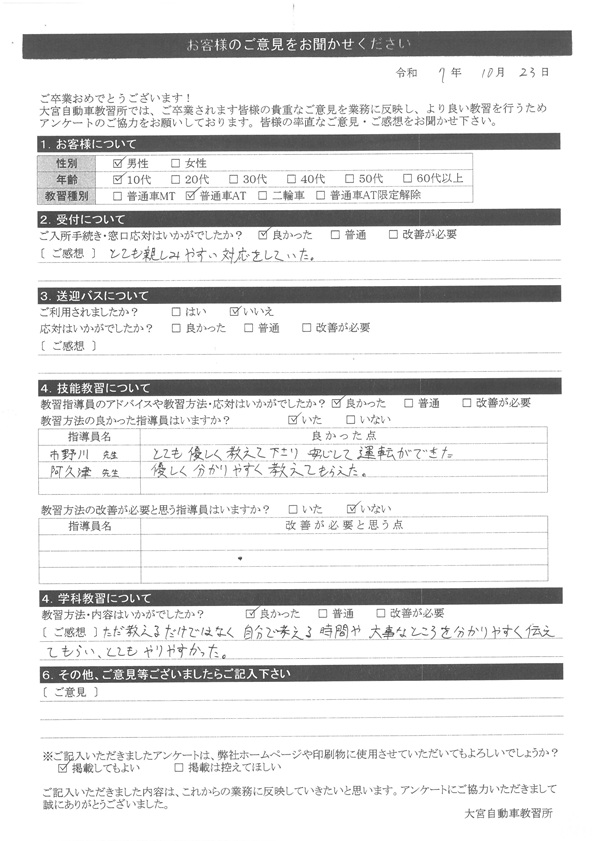 お客様のご意見をお聞かせください
令和 7年 10月 23日
ご卒業おめでとうございます！
大宮自動車教習所では、ご卒業されます皆様の貴重なご意見を業務に反映し、より良い教習を行うため
アンケートのご協力をお願いしております。皆様の率直なご意見・ご感想をお聞かせ下さい。
1. お客様について
性別 ☑男性 □女性
年齢 ☑10代 □20代 □30代 □40代 □50代 □60代以上
教習種別 □普通車MT ☑普通車AT □二輪車 □普通車AT限定解除
2. 受付について
ご入所手続き・窓口応対はいかがでしたか？ ☑良かった □普通 □改善が必要
［ ご感想 ］ とても親しみやすい対応をしていた。
3. 送迎バスについて
ご利用されましたか？ □はい ☑いいえ
応対はいかがでしたか？ □良かった □普通 □改善が必要
［ ご感想 ］
4. 技能教習について
教習指導員のアドバイスや教習方法・応対はいかがでしたか？ ☑良かった □普通 □改善が必要
教習方法の良かった指導員はいますか？ ☑いた □いない
指導員名 良かった点
市野川 先生 とても優しく教えて下さり 安心して運転ができた
阿久津 先生 優しく分かりやすく教えてもらえた。
教習方法の改善が必要と思う指導員はいますか？ □いた ☑いない
指導員名 改善が必要と思う点
4. 学科教習について
教習方法・内容はいかがでしたか？ ☑良かった □普通 □改善が必要
［ ご感想 ］ただ教えるだけではなく 自分で考える時間や 大事なところを分かりやすく伝え
てもらい、とてもやりやすかった。
6. その他、ご意見等ございましたらご記入下さい
［ ご意見 ］
※ご記入いただきましたアンケートは、弊社ホームページや印刷物に使用させていただいてもよろしいでしょうか？
☑掲載してもよい □掲載は控えてほしい
ご記入いただきました内容は、これからの業務に反映していきたいと思います。アンケートにご協力いただきまして
誠にありがとうございました。
大宮自動車教習所